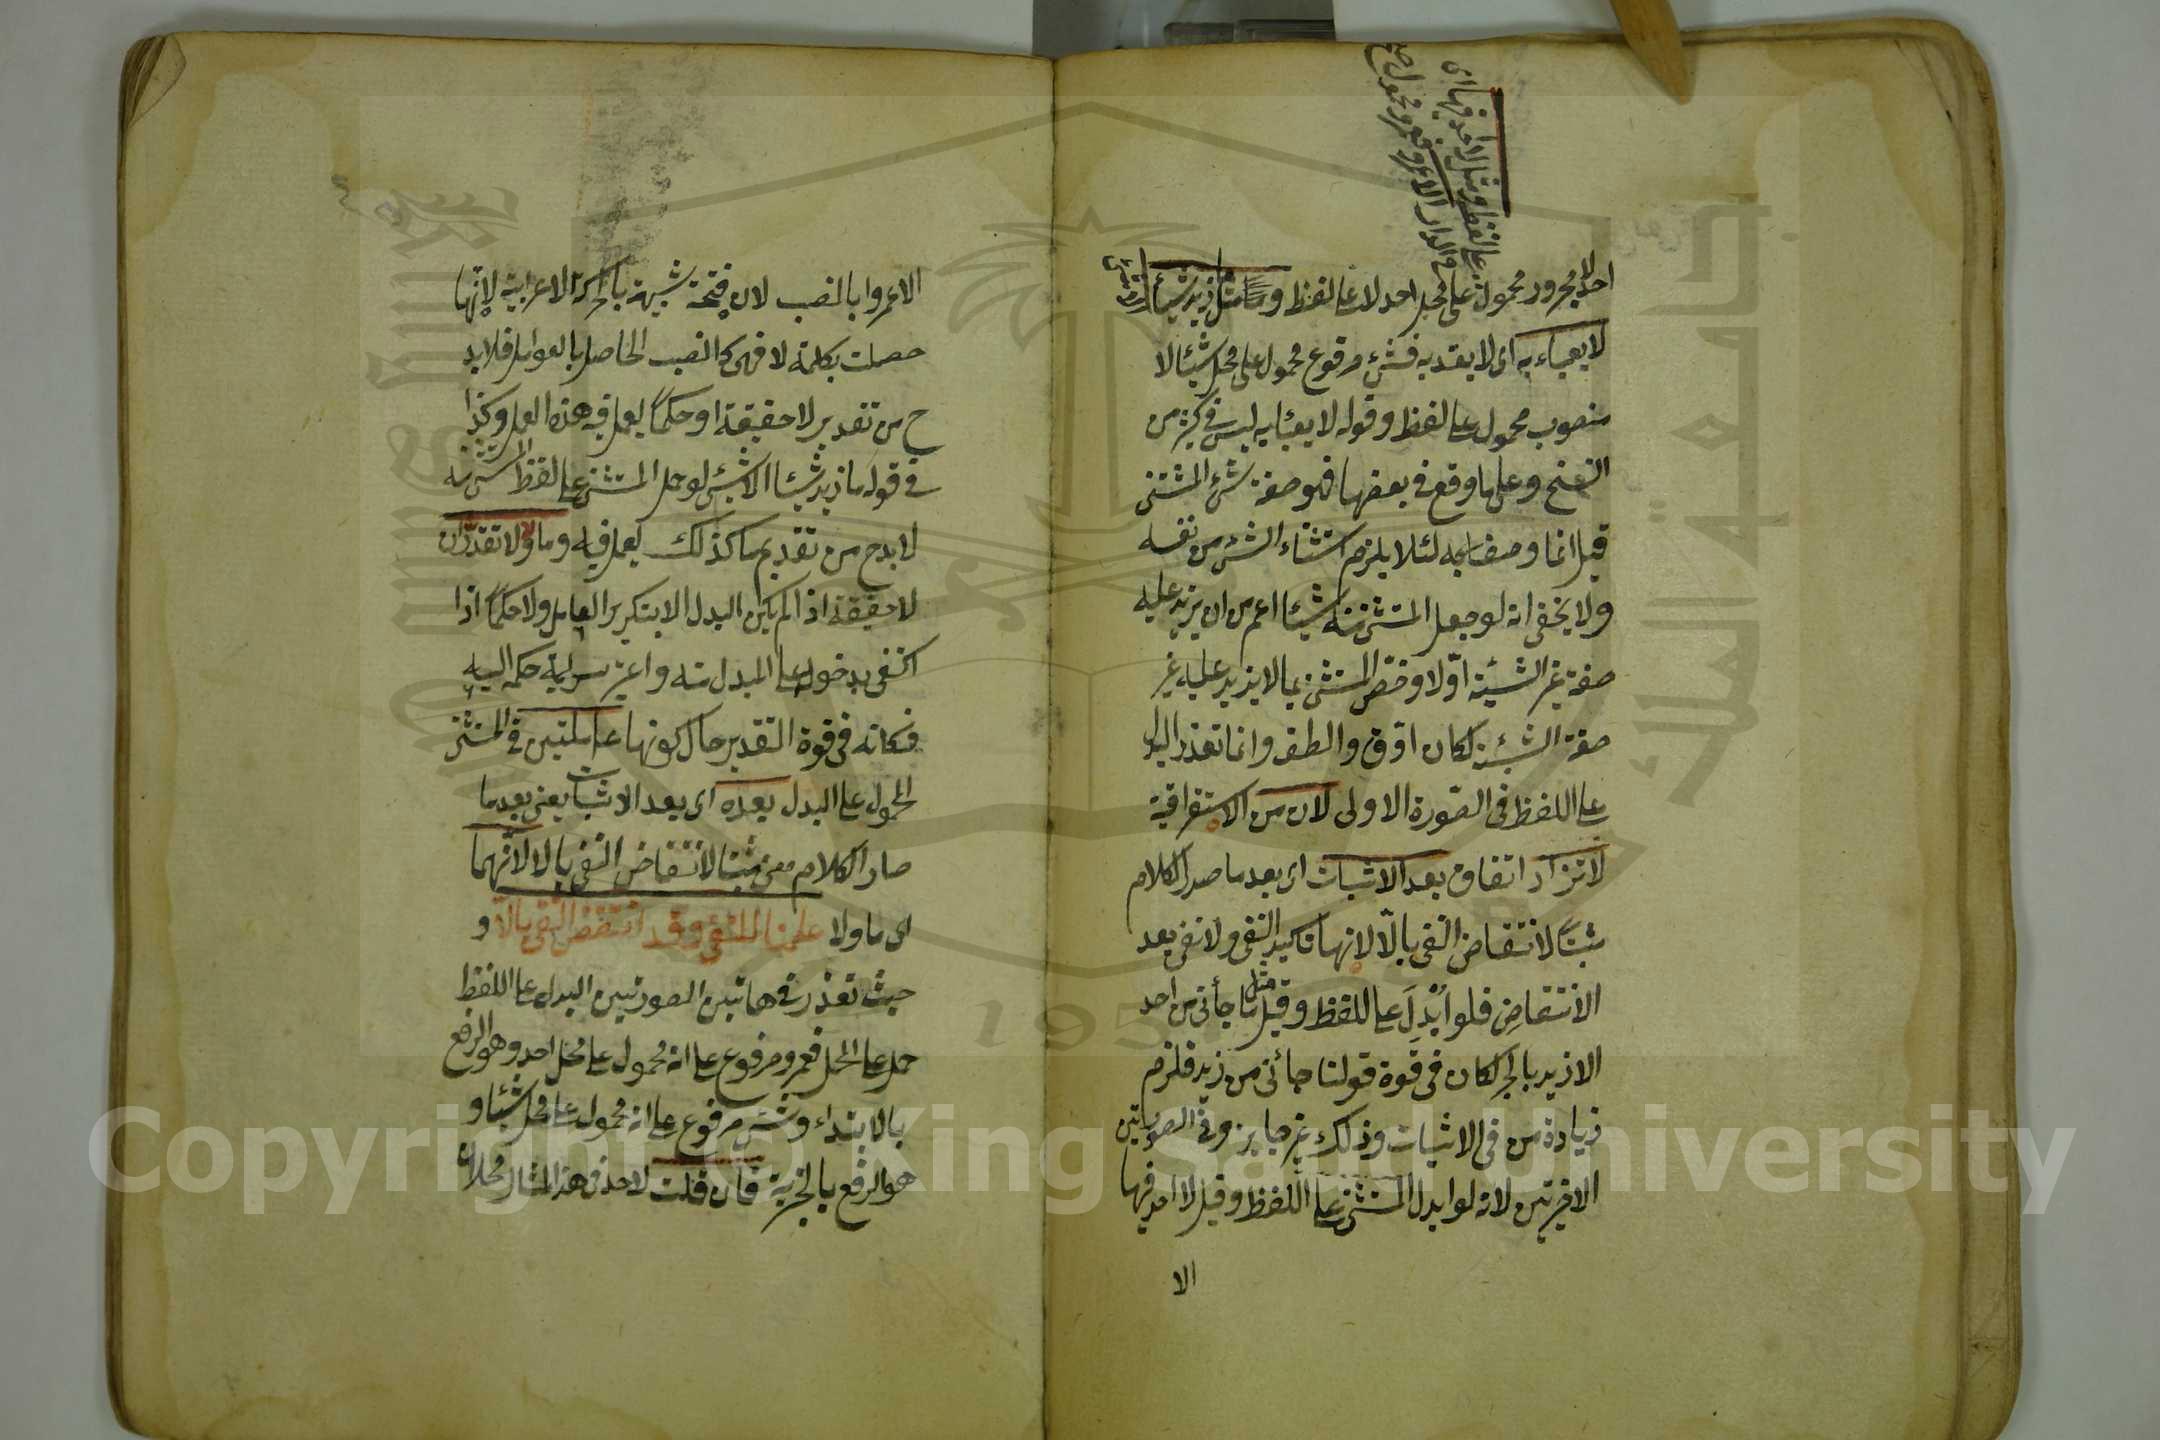 على اللفظ ومثل لا احد فيها اى
فى الدار الا عمرو فعمرو محمول
احد لا مجرور محمول على محل احد لا على لفظ ومثل ما زيد شيئا الا شئ
لا يعباء به اى لا يعتد به فشئ مرفوع محمول على محل شيئا لا
منصوب محمول على لفظ وقوله لا يعبئا به ليس فى كثير من
النسخ وعلى ما وقع فى بعضها فهو صفة شئ المستثنى
قيل انما وصفا به لئلا يلزم استثناء الشئ من نفسه
ولا يخفى انه لو جعل المستثنى منه شيئا اعم من ان يزيد عليه
صفة غير الشيئية اولا وخص المستثنى بما لا يزيد عليه غير
صفة الشيئية لكان اوفق والطف وانما تعذر البدل
على اللفظ فى الصورة الاولى لان من الاستغراقية
لا تزاد اتفاقا بعد الاثبات اى بعد ما صدر الكلام
مثبتا لانتقاض النفى بالا لانها تاكيد النفى ولا نفى بعد
الانتقاض فلو ابدل على اللفظ وقيل مثل ما جأنى من احد
الا زيد بالجر لكان فى قوة قولنا جائنى من زيد فلزم
زيادة من فى الاثبات وذلك غير جايز وفى الصورتين
الاخيرتين لانه لو ابدل المستثنى على اللفظ وقيل لا احد فيها
الا
الا عمروا بالنصب لان فتحة شبيهة بالحركة الاعرابية لانها
حصلت بكلمة لا فهى كالنصب الحاصل بالعوامل فلا بد
ح من تقدير لا حقيقة او حكماً ليعمل فيه هذه العمل وكذا
فى قوله ما زيد شيئا الا شئ لو حمل المستثنى على لفظ المستثنى منه
لا بد ح من تقديم ما كذلك ليعمل فيه وما ولا تقدران
لا حقيقة اذا لم يكن البدل الا بتكرير العامل ولا حكماً اذا
اكتفى بدخوله على المبدل منه واعتبر سراية حكمه اليه
فكانه فى قوة التقدير حال كونها عاملتين فى المستثنى
المحمول على البدل بعده اى بعد الاثبات يعنى بعد ما
صار الكلام معنى مثبتا لانتقاض النفى بالا لانهما
اى ما ولا علمتا للنفى وقد انتقض النفى بالا و
حيث تعذر فى هاتين الصورتين البدل على اللفظ
حمل على المحل فعمرو مرفوع على انه محمول على محل احد وهو الرفع
بالابتداء وشئ مرفوع على انه محمول على محل شيئا و
هو الرفع بالخبرية فان قلت لاحد فى هذا المثال محلان
Copyright © King Saud University
جامعة الملك سعود
1957